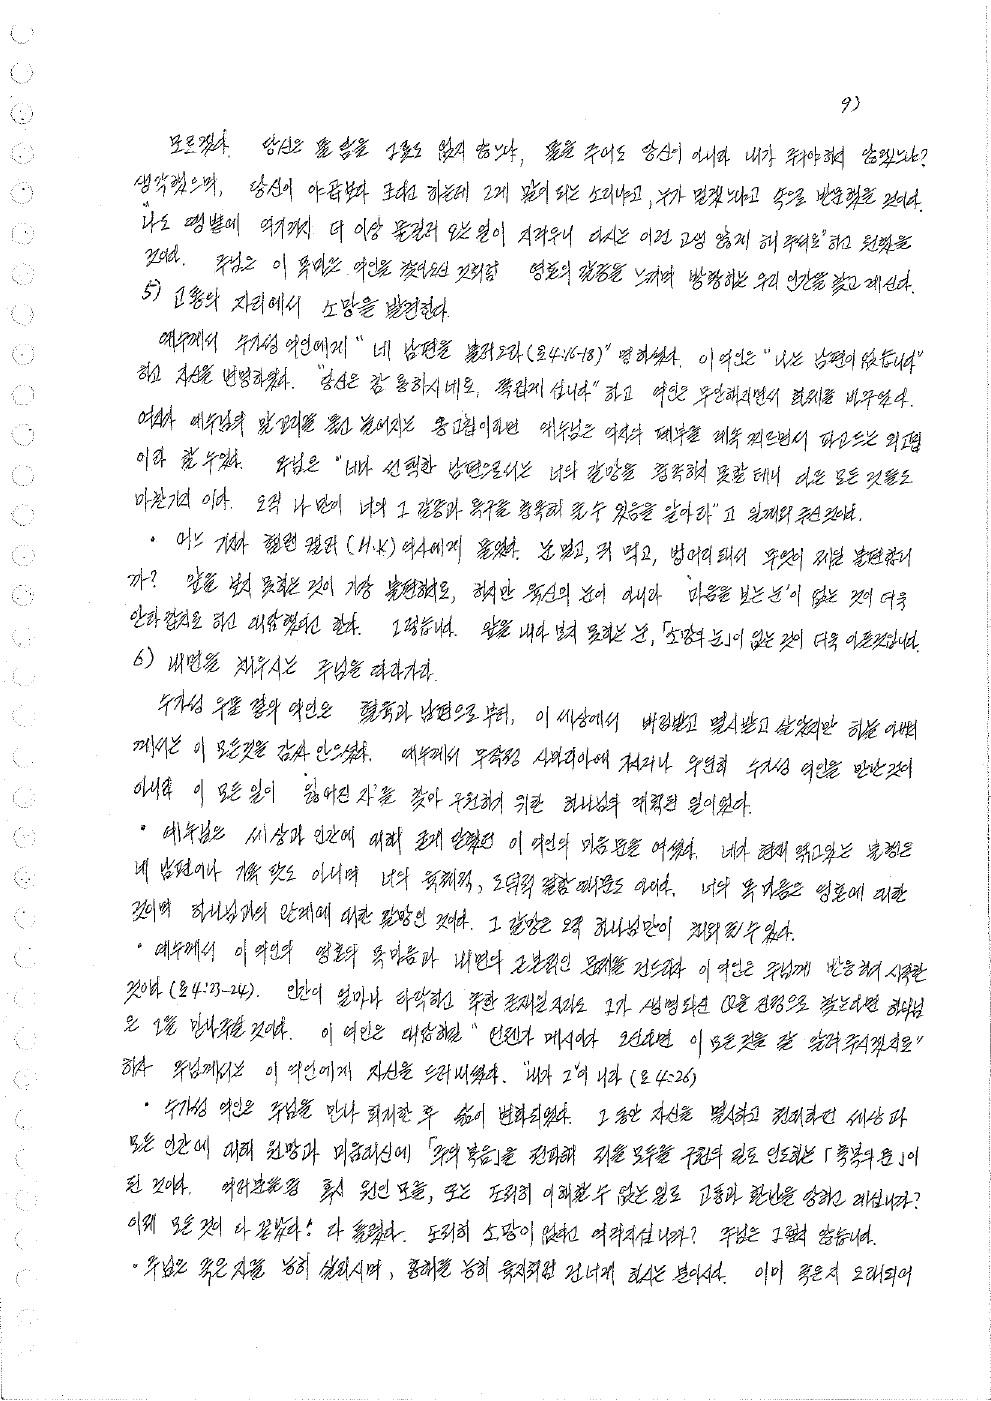 93
모르겠다. 당신은 물 담을 그릇도 없지 않느냐, 물을 주어도 당신이 아니라 내가 주어야 하지 않겠느냐?
생각했으며, 당신이 야곱보다 크다고 하는데 그게 말이 되는 소리냐고, 누가 믿겠느냐고 속으로 반문했을 것이다.
"나도 땡볕에 여기까지 더 이상 물길러 오는 일이 지겨우니 다시는 이런 고생 않게 해 주셔요" 하고 원했을
것이다. 주님은 이 목마른 여인을 찾아오신 것처럼 영혼의 갈증을 느끼며 방황하는 우리 인간을 찾고 계신다.
5) 고통의 자리에서 소망을 발견한다.
예수께서 수가성 여인에게 "네 남편을 불러오라(요4:16-18)" 명하셨다. 이 여인은 "나는 남편이 없습니다"
하고 자신을 변명하였다. "당신은 참 용하시네요, 쪽집게십니다" 하고 여인은 무안해지면서 화제를 바꾸었다.
여자가 예수님의 말꼬리를 물고 늘어지는 옹고집이라면 예수님은 여자의 폐부를 계속 찌르면서 파고드는 외고집
이라 할 수 있다. 주님은 "네가 선택한 남편으로서는 너의 갈망을 충족하지 못할 테니 다른 모든 것들도
마찬가지이다. 오직 나만이 너의 그 갈증과 욕구를 충족해 줄 수 있음을 알아라"고 일깨워 주신 것이다.
· 어느 기자가 헬렌 켈러(H.K) 여사에게 물었다. 눈 멀고, 귀 먹고, 벙어리 돼서 무엇이 제일 불편합니
까? 앞을 보지 못하는 것이 가장 불편하지요, 하지만 육신의 눈이 아니라 '마음을 보는 눈'이 없는 것이 더욱
안타깝지요 하고 대답했다고 한다. 그렇습니다. 앞을 내다 보지 못하는 눈,「소망의 눈」이 없는 것이 더욱 아픈것입니다.
6) 내면을 채우시는 주님을 따라가라.
수가성 우물 곁의 여인은 혈육과 남편으로부터, 이 세상에서 버림받고 멸시받고 살았지만 하늘 아버지
께서는 이 모든것을 감싸 안으셨다. 예수께서 무작정 사마리아에 가셨거나 우연히 수가성 여인을 만난 것이
아니라 이 모든 일이 '잃어진 자'를 찾아 구원하기 위한 하나님의 계획된 일이었다.
· 예수님은 세상과 인간에 대해 굳게 닫혔던 이 여인의 마음문을 여셨다. 네가 현재 겪고있는 불행은
네 남편이나 가족 탓도 아니며 너의 육체적, 도덕적 결함 때문도 아니다. 너의 목마름은 영혼에 대한
것이며 하나님과의 관계에 대한 갈망인 것이다. 그 갈망은 오직 하나님만이 채워 줄 수 있다.
· 예수께서 이 여인의 영혼의 목마름과 내면의 근본적인 문제를 건드리자 이 여인은 주님께 반응하기 시작한
것이다(요4:23-24). 인간이 얼마나 타락하고 추한 존재일지라도 그가 생명 되신 주을 진정으로 찾는다면 하나님
은 그를 만나주실 것이다. 이 여인은 대답하길 "언젠가 메시야가 오신다면 이 모든것을 잘 알려 주시겠지요"
하자 주님께서는 이 여인에게 자신을 드러내셨다. "내가 그"이니라(요4:26)
· 수가성 여인은 주님을 만나 회개한 후 삶이 변화되었다. 그 동안 자신을 멸시하고 천대하던 세상과
모든 인간에 대해 원망과 미움대신에「주의 복음」을 전파해 저들 모두를 구원의 길로 인도하는「축복의 문」이
된 것이다. 여러분들 중 혹시 원인 모를, 또는 도저히 이해할 수 없는 일로 고통과 환난을 당하고 계십니까?
이제 모든 것이 다 끝났다! 다 틀렸다. 도저히 소망이 없다고 여겨지십니까? 주님은 그렇지 않습니다.
· 주님은 죽은 자를 능히 살리시며, 홍해를 능히 육지처럼 건너게 하시는 분이시다. 이미 죽은지 오래되어